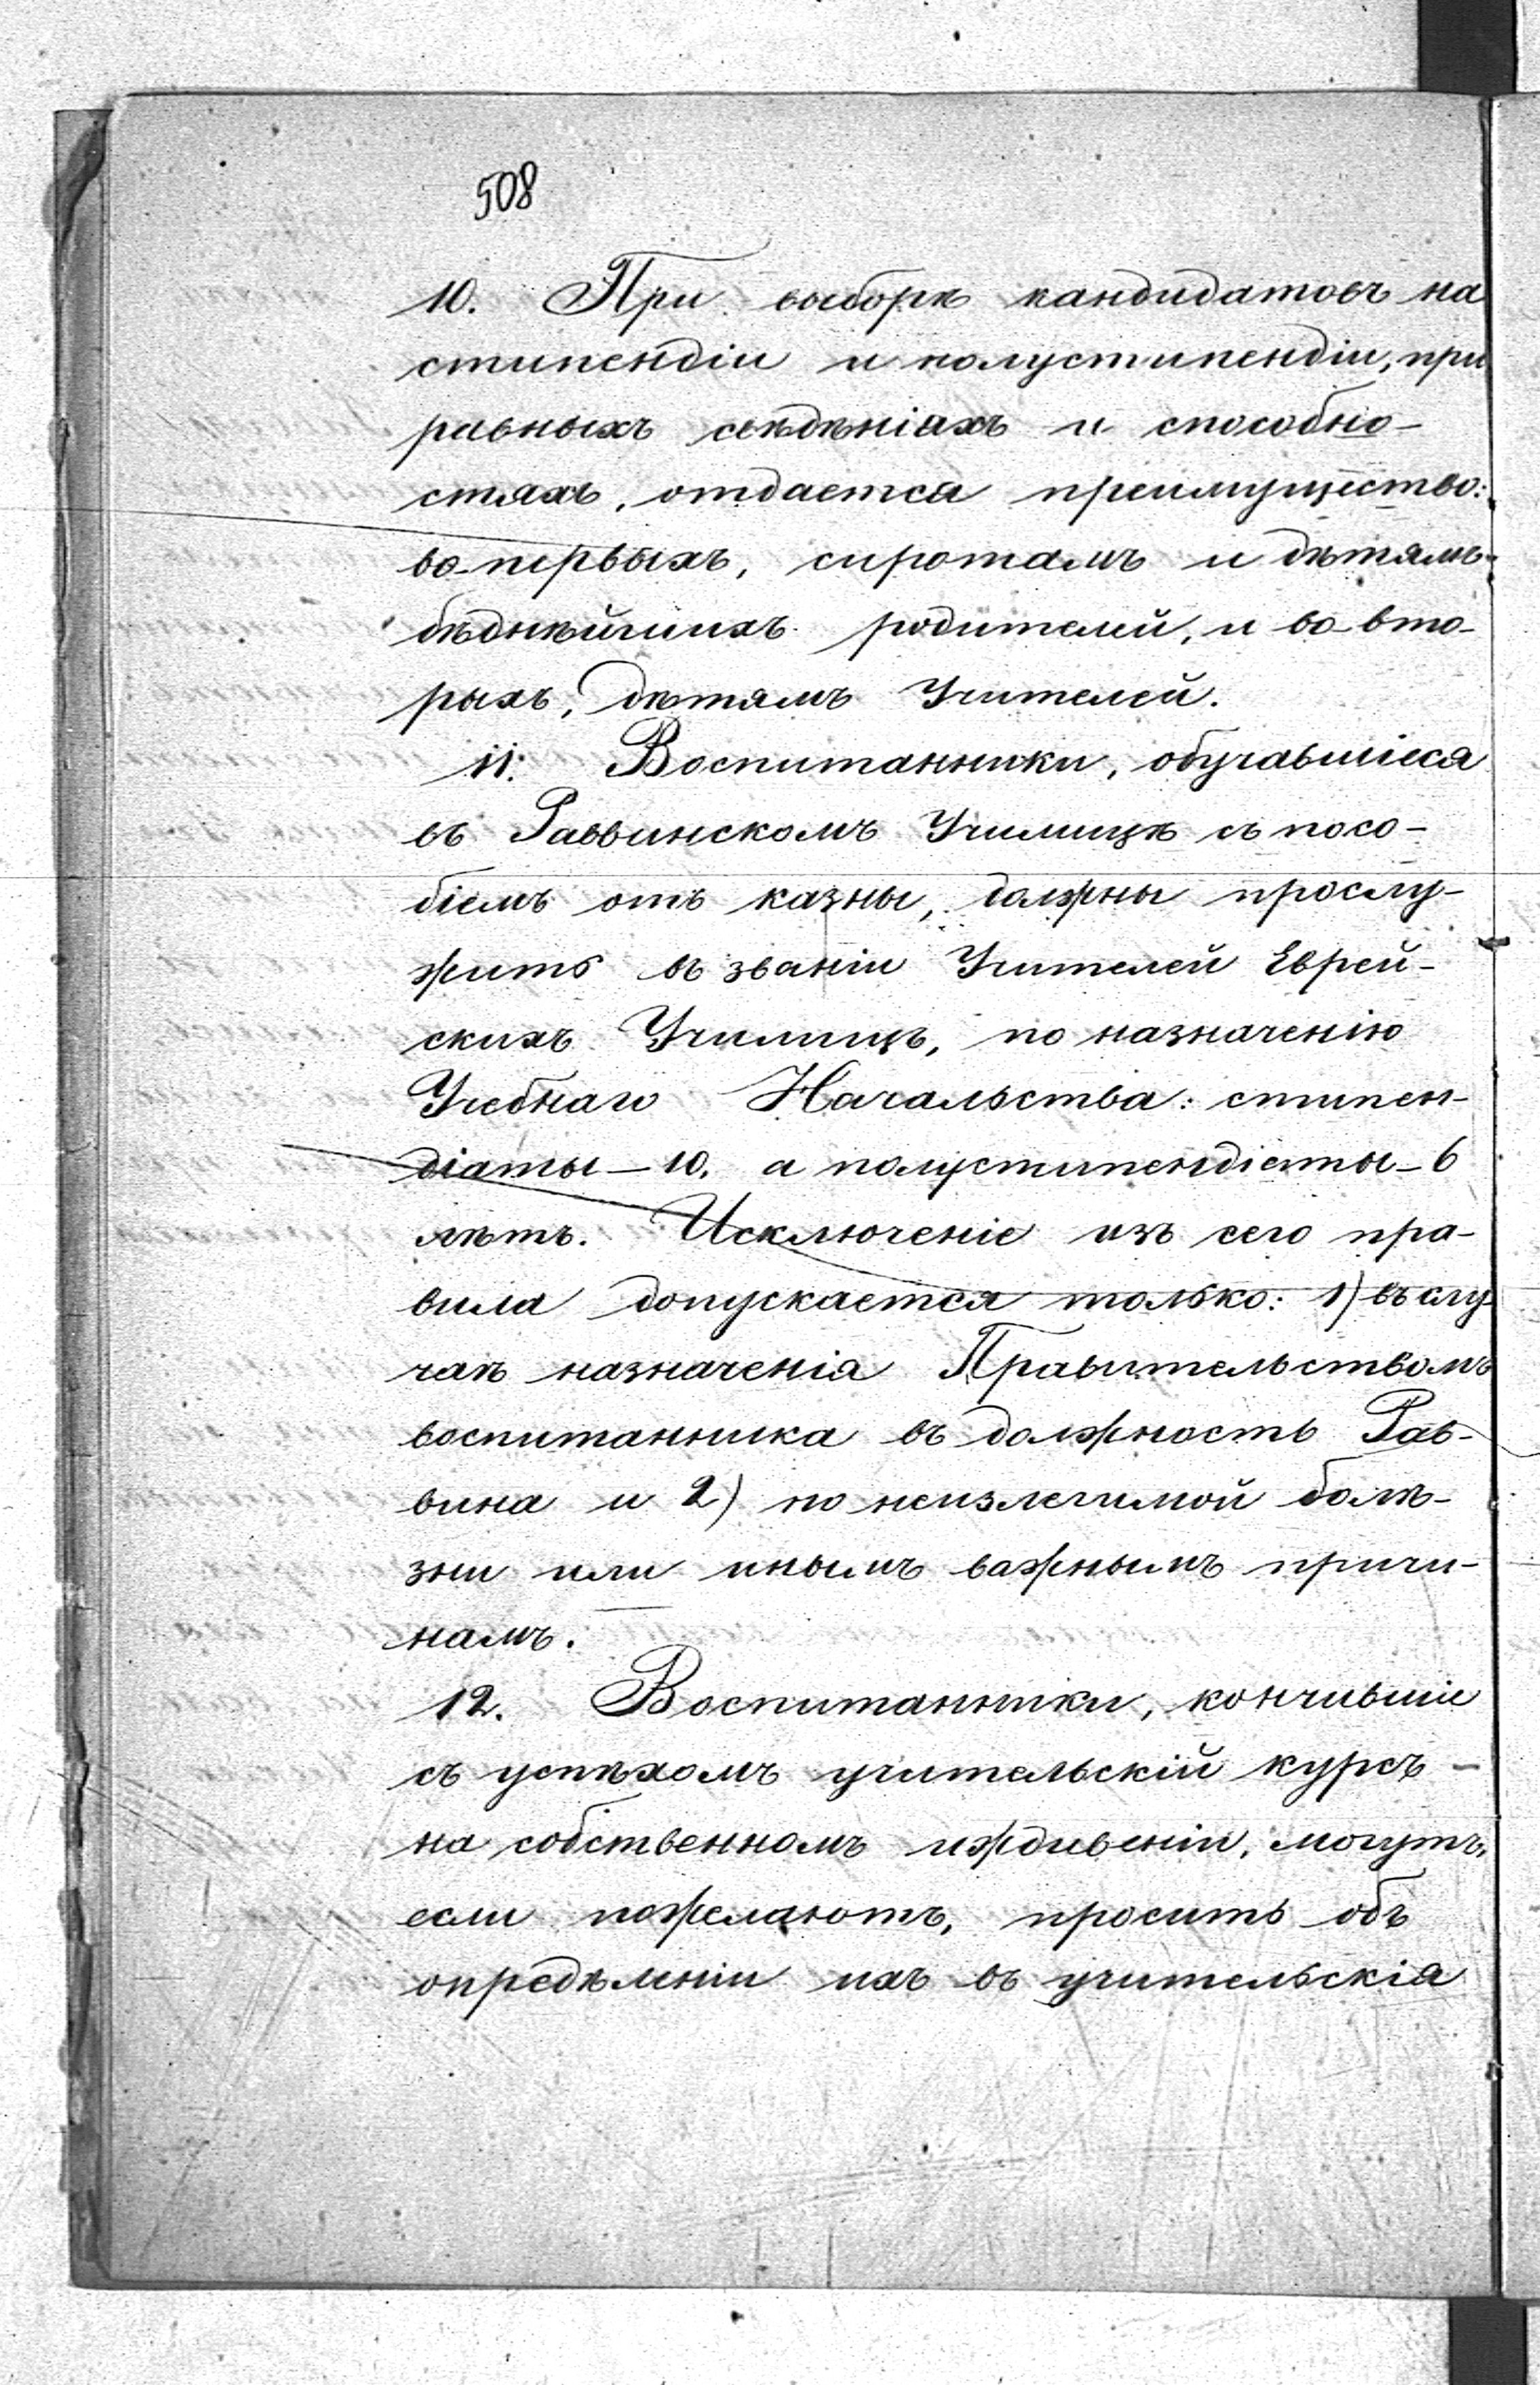 508
10. При выборѣ кандидатовъ на
стипендіи и полустипендіи, при
равныхъ свѣдѣніяхъ и способно-
стяхъ, отдается преимущество:
во-первыхъ, сиротамъ и дѣтямъ
бѣднѣйшихъ родителей, и во-вто-
рыхъ, дѣтямъ Учителей.
11. Воспитанники, обучавшіеся
въ Раввинскомъ Училищѣ съ посо-
біемъ отъ казны, должны прослу-
жить въ званіи Учителей Еврей-
скихъ Училищъ, по назначенію
Учебнаго Начальства: стипен-
діаты – 10, а полустипендіаты – 6
лѣтъ. Исключеніе изъ сего пра-
вила допускается только: 1) въ слу-
чаѣ назначенія Правительствомъ
воспитанника въ должность Рав-
вина и 2) по неизлечимой болѣ-
зни или инымъ важнымъ причи-
намъ.
12. Воспитанники, кончившіе
съ успѣхомъ учительскій курсъ –
на собственномъ иждивеніи, могутъ,
если пожелаютъ, просить объ
опредѣленіи ихъ въ учительскія